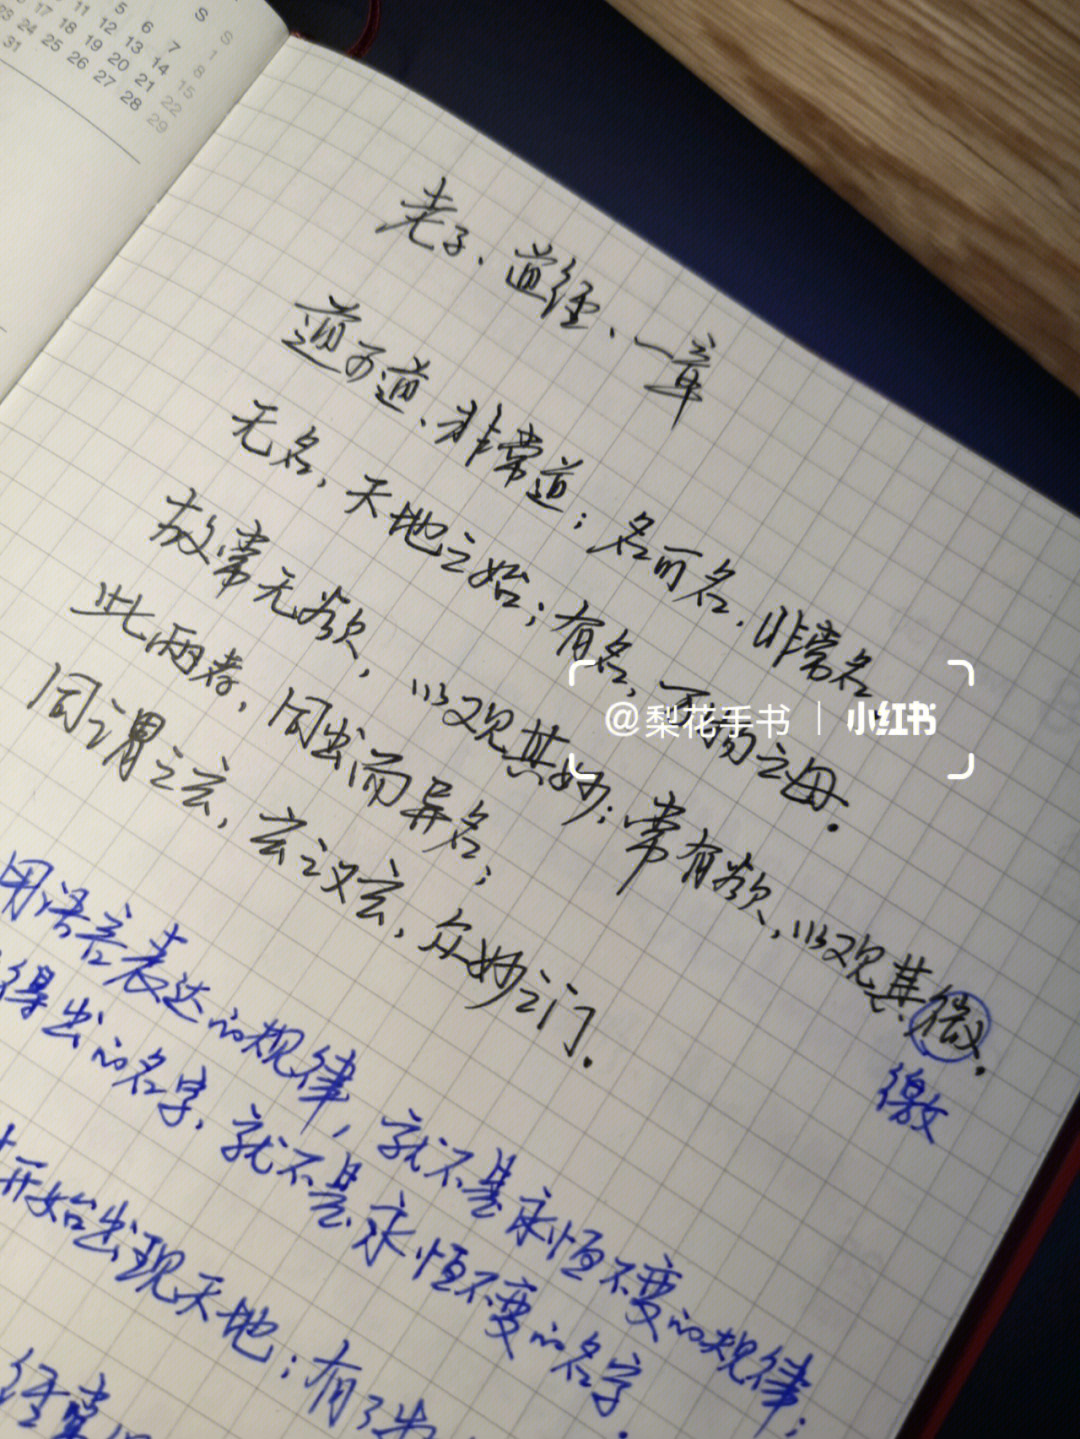 S S
5 6 7 1
11 12 13 14 8
17 18 19 20 21 15
23 24 25 26 27 28 22
31 29
老子、道经、一章
道可道、非常道；名可名，非常名
无名，天地之始；有名，万物之母．
故常无欲，以观其妙；常有欲，以观其微．
缴
此两者，同出而异名；
同谓之玄，玄之又玄，众妙之门．
@梨花手书 | 小红书
用语言表达的规律，就不是永恒不变的规律；
得出的名字，就不是永恒不变的名字．
开始出现天地；有了
经常